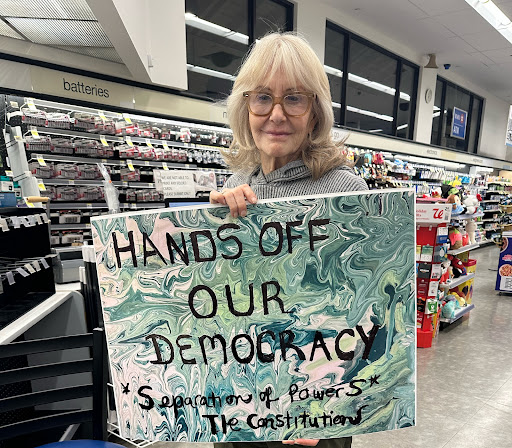 batteries
HANDS OFF
OUR
DEMOCRACY
*Separation of Powers*
The Constitution!